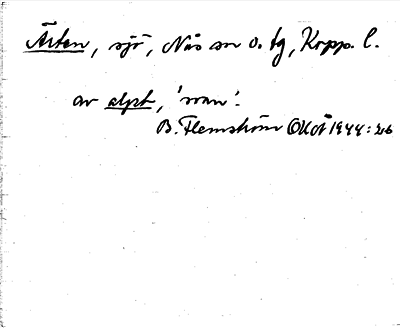 Ärten, sjö, Nås sn o. tg, Kopp. l.
av alpt, 'svan'.
B. Flemström OUoÅ 1944: 26